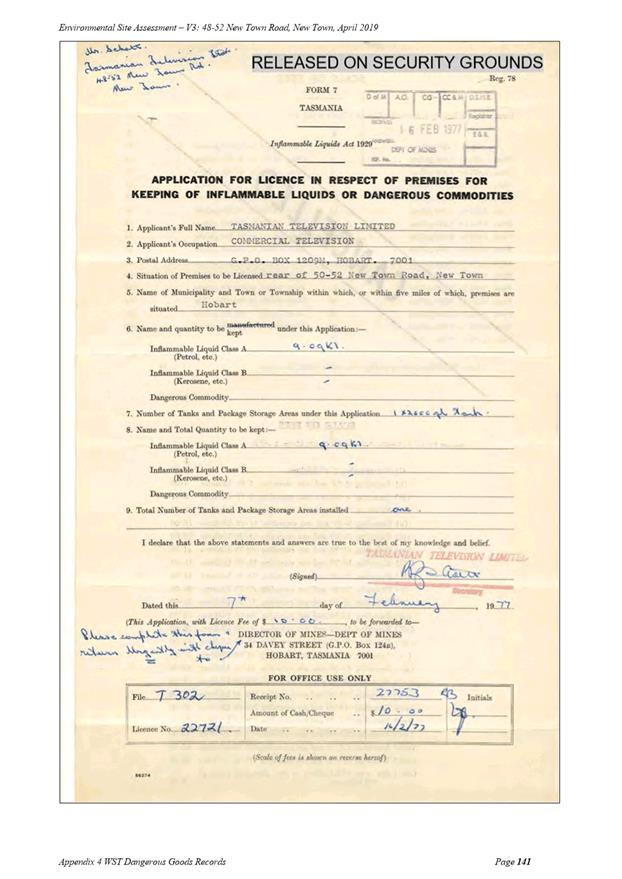 Environmental Site Assessment – V3: 48-52 New Town Road, New Town, April 2019
Mr. Schott.
Tasmanian Television Ltd.
48-52 New Town Rd.
New Town.
RELEASED ON SECURITY GROUNDS
Reg. 78
FORM 7
TASMANIA
D of M A.O. CG CC & M
Registrar
RECEIVED
16 FEB 1977
E & R.
ANSWERED
DEPT OF MINES
REF. No.
Inflammable Liquids Act 1929
APPLICATION FOR LICENCE IN RESPECT OF PREMISES FOR
KEEPING OF INFLAMMABLE LIQUIDS OR DANGEROUS COMMODITIES
1. Applicant's Full Name TASMANIAN TELEVISION LIMITED
2. Applicant's Occupation COMMERCIAL TELEVISION
3. Postal Address G.P.O. BOX 1209M, HOBART. 7001
4. Situation of Premises to be Licensed rear of 50-52 New Town Road, New Town
5. Name of Municipality and Town or Township within which, or within five miles of which, premises are
situated Hobart
6. Name and quantity to be manufactured kept under this Application:—
Inflammable Liquid Class A 9.09Kl.
(Petrol, etc.)
Inflammable Liquid Class B –
(Kerosene, etc.) –
Dangerous Commodity
7. Number of Tanks and Package Storage Areas under this Application 1 x2000 gl Tank.
8. Name and Total Quantity to be kept:—
Inflammable Liquid Class A 9.09Kl.
(Petrol, etc.)
Inflammable Liquid Class B –
(Kerosene, etc.) –
Dangerous Commodity
9. Total Number of Tanks and Package Storage Areas installed one.
I declare that the above statements and answers are true to the best of my knowledge and belief.
TASMANIAN TELEVISION LIMITED
(Signed)
Secretary
Dated this 7th day of February, 1977
(This Application, with Licence Fee of $ 10.00, to be forwarded to—
Please complete this form &
return Urgently with cheque
to
DIRECTOR OF MINES—DEPT OF MINES
34 DAVEY STREET (G.P.O. Box 124B),
HOBART, TASMANIA 7001
FOR OFFICE USE ONLY
File T 302 Receipt No. .. .. .. 27753 Initials
Amount of Cash/Cheque .. $10.00
Licence No. 22721. Date .. .. .. .. 16/2/77
(Scale of fees is shown on reverse hereof)
86274
Appendix 4 WST Dangerous Goods Records Page 141